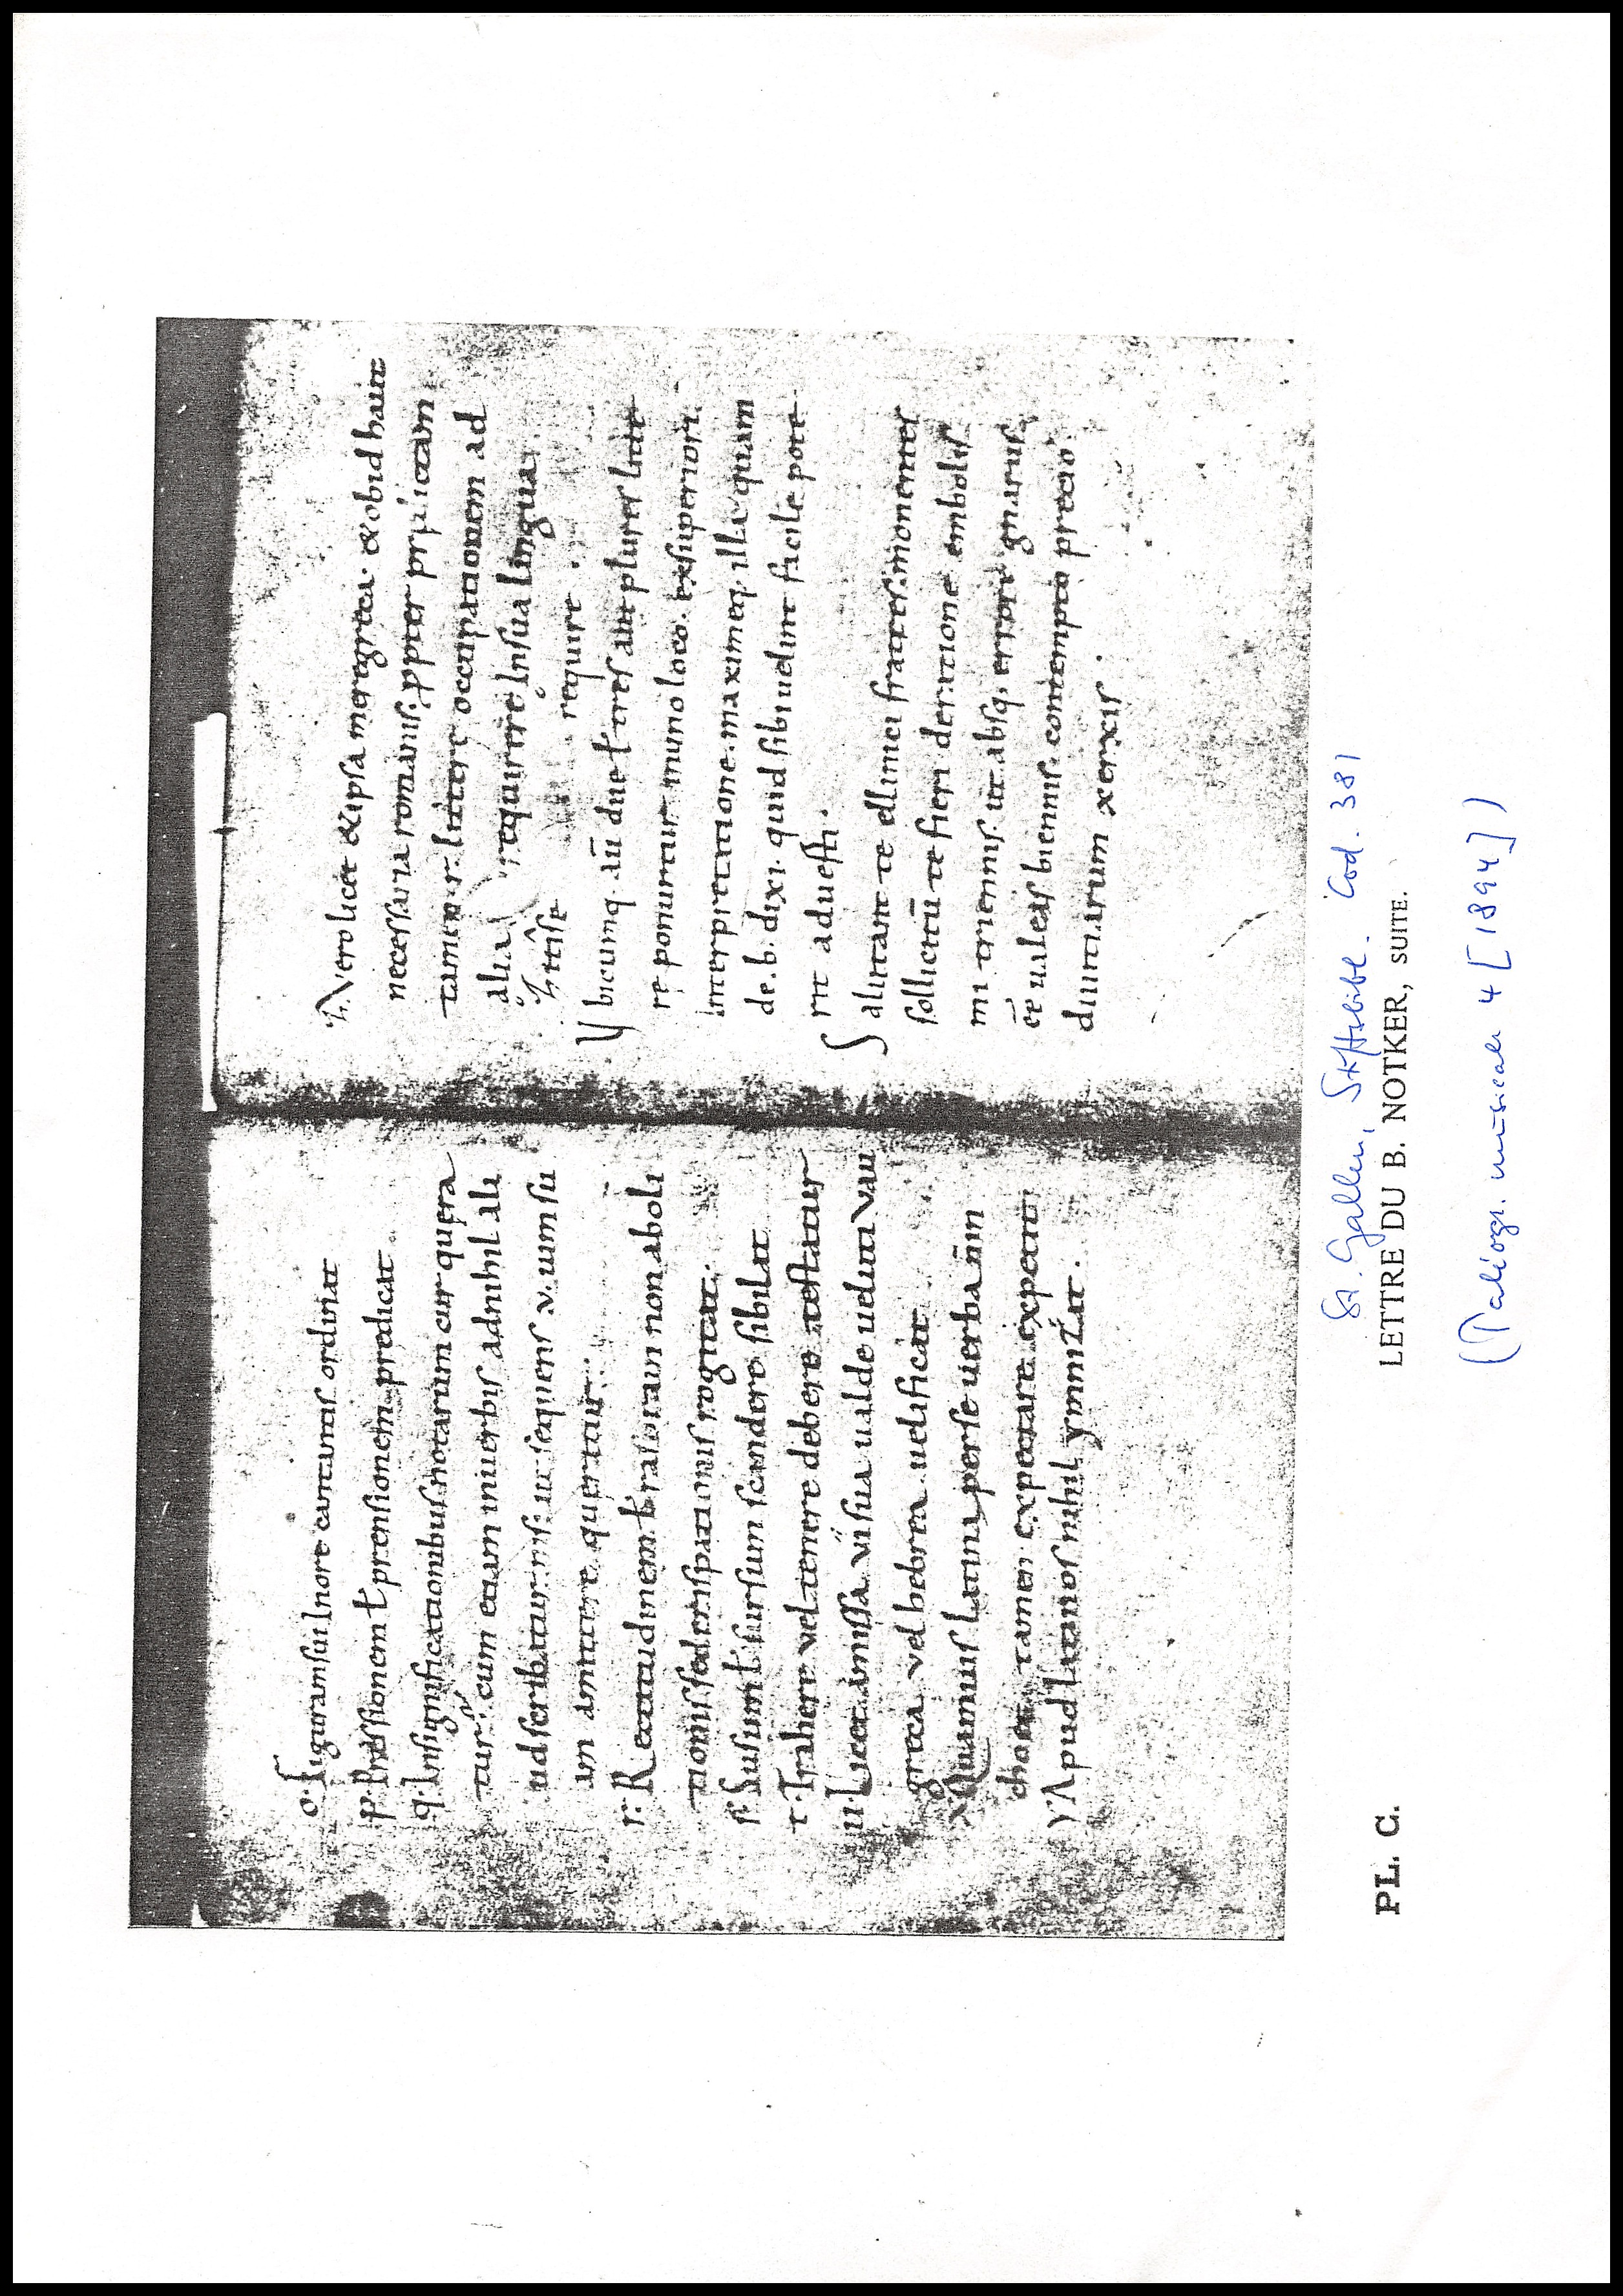 o. Figuram sui Inore cantantis ordinat
p. Pressionem ł prensionem predicat
q. Insignificationibus notarum cur quera
tur. cum etiam inuerbis adnihil ali
ud scribatur nisi ut sequens .v. uim su
am amittere queratur.
r. Rectitudinem ł rasuram non aboli
tionis sed crispationis rogitat.
s. Susum ł sursum scandere sibilat
t. Trahere vel tenere debere testatur
u. Licet amissa ui sua ualde ueluti vau
greca vel hebrea uelificat
x Quamuis latina per se uerba nīm
choet tamen expectare expetit
y Apud latinos nihil ymnizat.
z. Vero licet & ipsa mere greca. & ob id haut
necessaria romanis. ppter prędictam
tamen r. litterę occupationem ad
alia requirere In sua lingua
z ttîse require.
Vbicumq. aū due ł tres aut plures litte
re ponuntur in uno loco. ex superiori
interpretatione. maximeq. illa quam
de .b. dixi. quid sibi uelint facile pote
rit aduerti.
Salutant te ellinici fratres. monentes
sollicitū te fieri de ratione embolis
mi triennis. ut absq. errore gnarus
eē ualeas biennis. contempto precio
diuitiarum xerxis.
St. Gallen, Stiftsbibl. Cod. 381
PL. C. LETTRE DU B. NOTKER, SUITE.
(Paléogr. musicale 4 [1894])